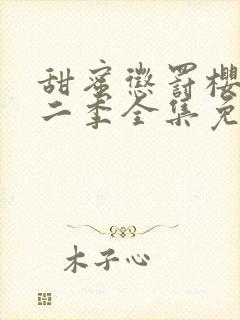 甜蜜懲罰櫻
二季全集免
木子心